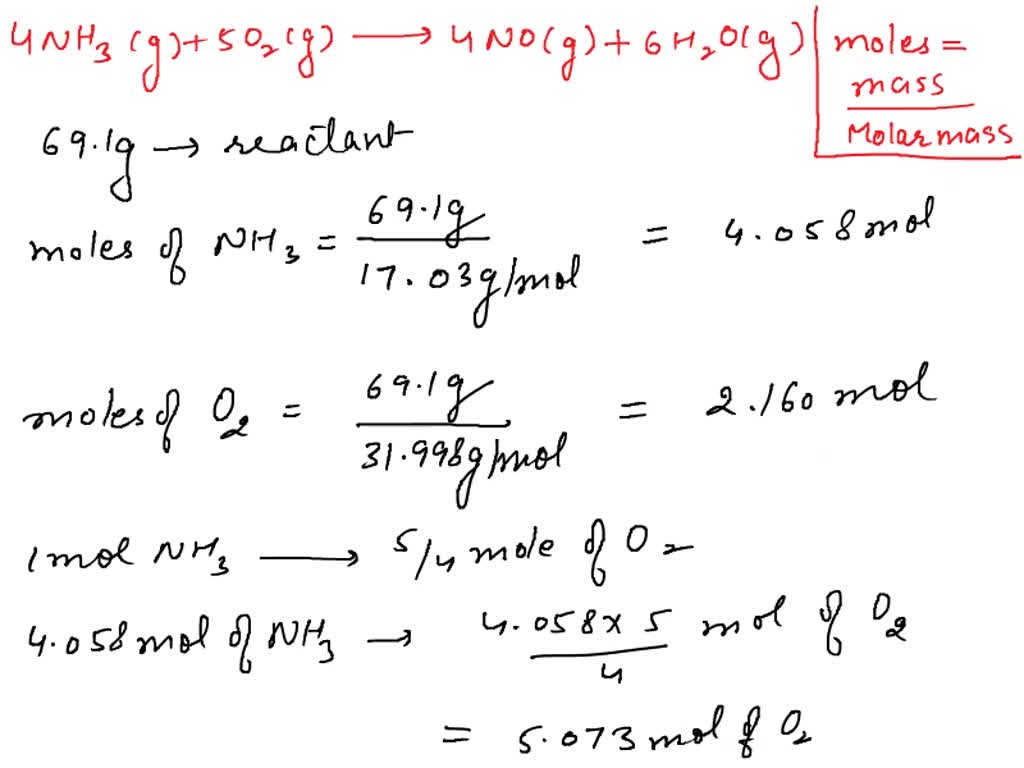 4NH3(g)+5O2(g) ⟶ 4NO(g)+6H2O(g)
moles =
mass
Molarmass
69.1g → reactant
moles of NH3 = 69.1g / 17.03g/mol = 4.058mol
moles of O2 = 69.1g / 31.998g/mol = 2.160 mol
1mol NH3 ⟶ 5/4 mole of O2
4.058mol of NH3 → 4.058×5 / 4 mol of O2
= 5.073 mol of O2